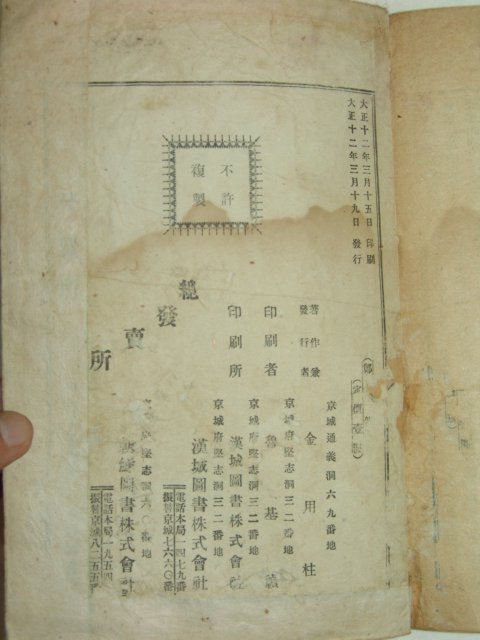 大正十二年三月十五日 印刷
大正十二年三月十九日 發行
不許
複製
定價壹圓
京城通義洞六九番地
著作兼
發行者
金用柱
京城府堅志洞三二番地
印刷者 魯基禎
京城府堅志洞三二番地
印刷所 漢城圖書株式會社
京城府堅志洞三二番地
總發賣所
漢城圖書株式會社
電話本局一四七九番
振替京城七六六〇番
京城府堅志洞六〇番地
圖書株式會社
電話本局一九五四
振替京城八一五五番